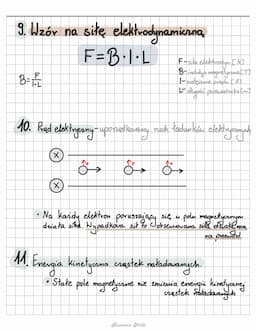 9. Wzór na siłę elektrodynamiczną
F = B · I · L
F - siła elektrodyn. [N]
B - indukcja magnetyczna [T]
I - natężenie prądu [A]
L - długość przewodnika [m]
B = F / I · L
10. Prąd elektryczny - uporządkowany ruch ładunków elektrycznych
X
X
• Na każdy elektron poruszający się w polu magnetycznym
działa siła. Wypadkowa sił to obserwowana siła działająca
na przewód
11. Energia kinetyczna cząstek naładowanych.
• Stałe pole magnetyczne nie zmienia energii kinetycznej
cząstek naładowanych